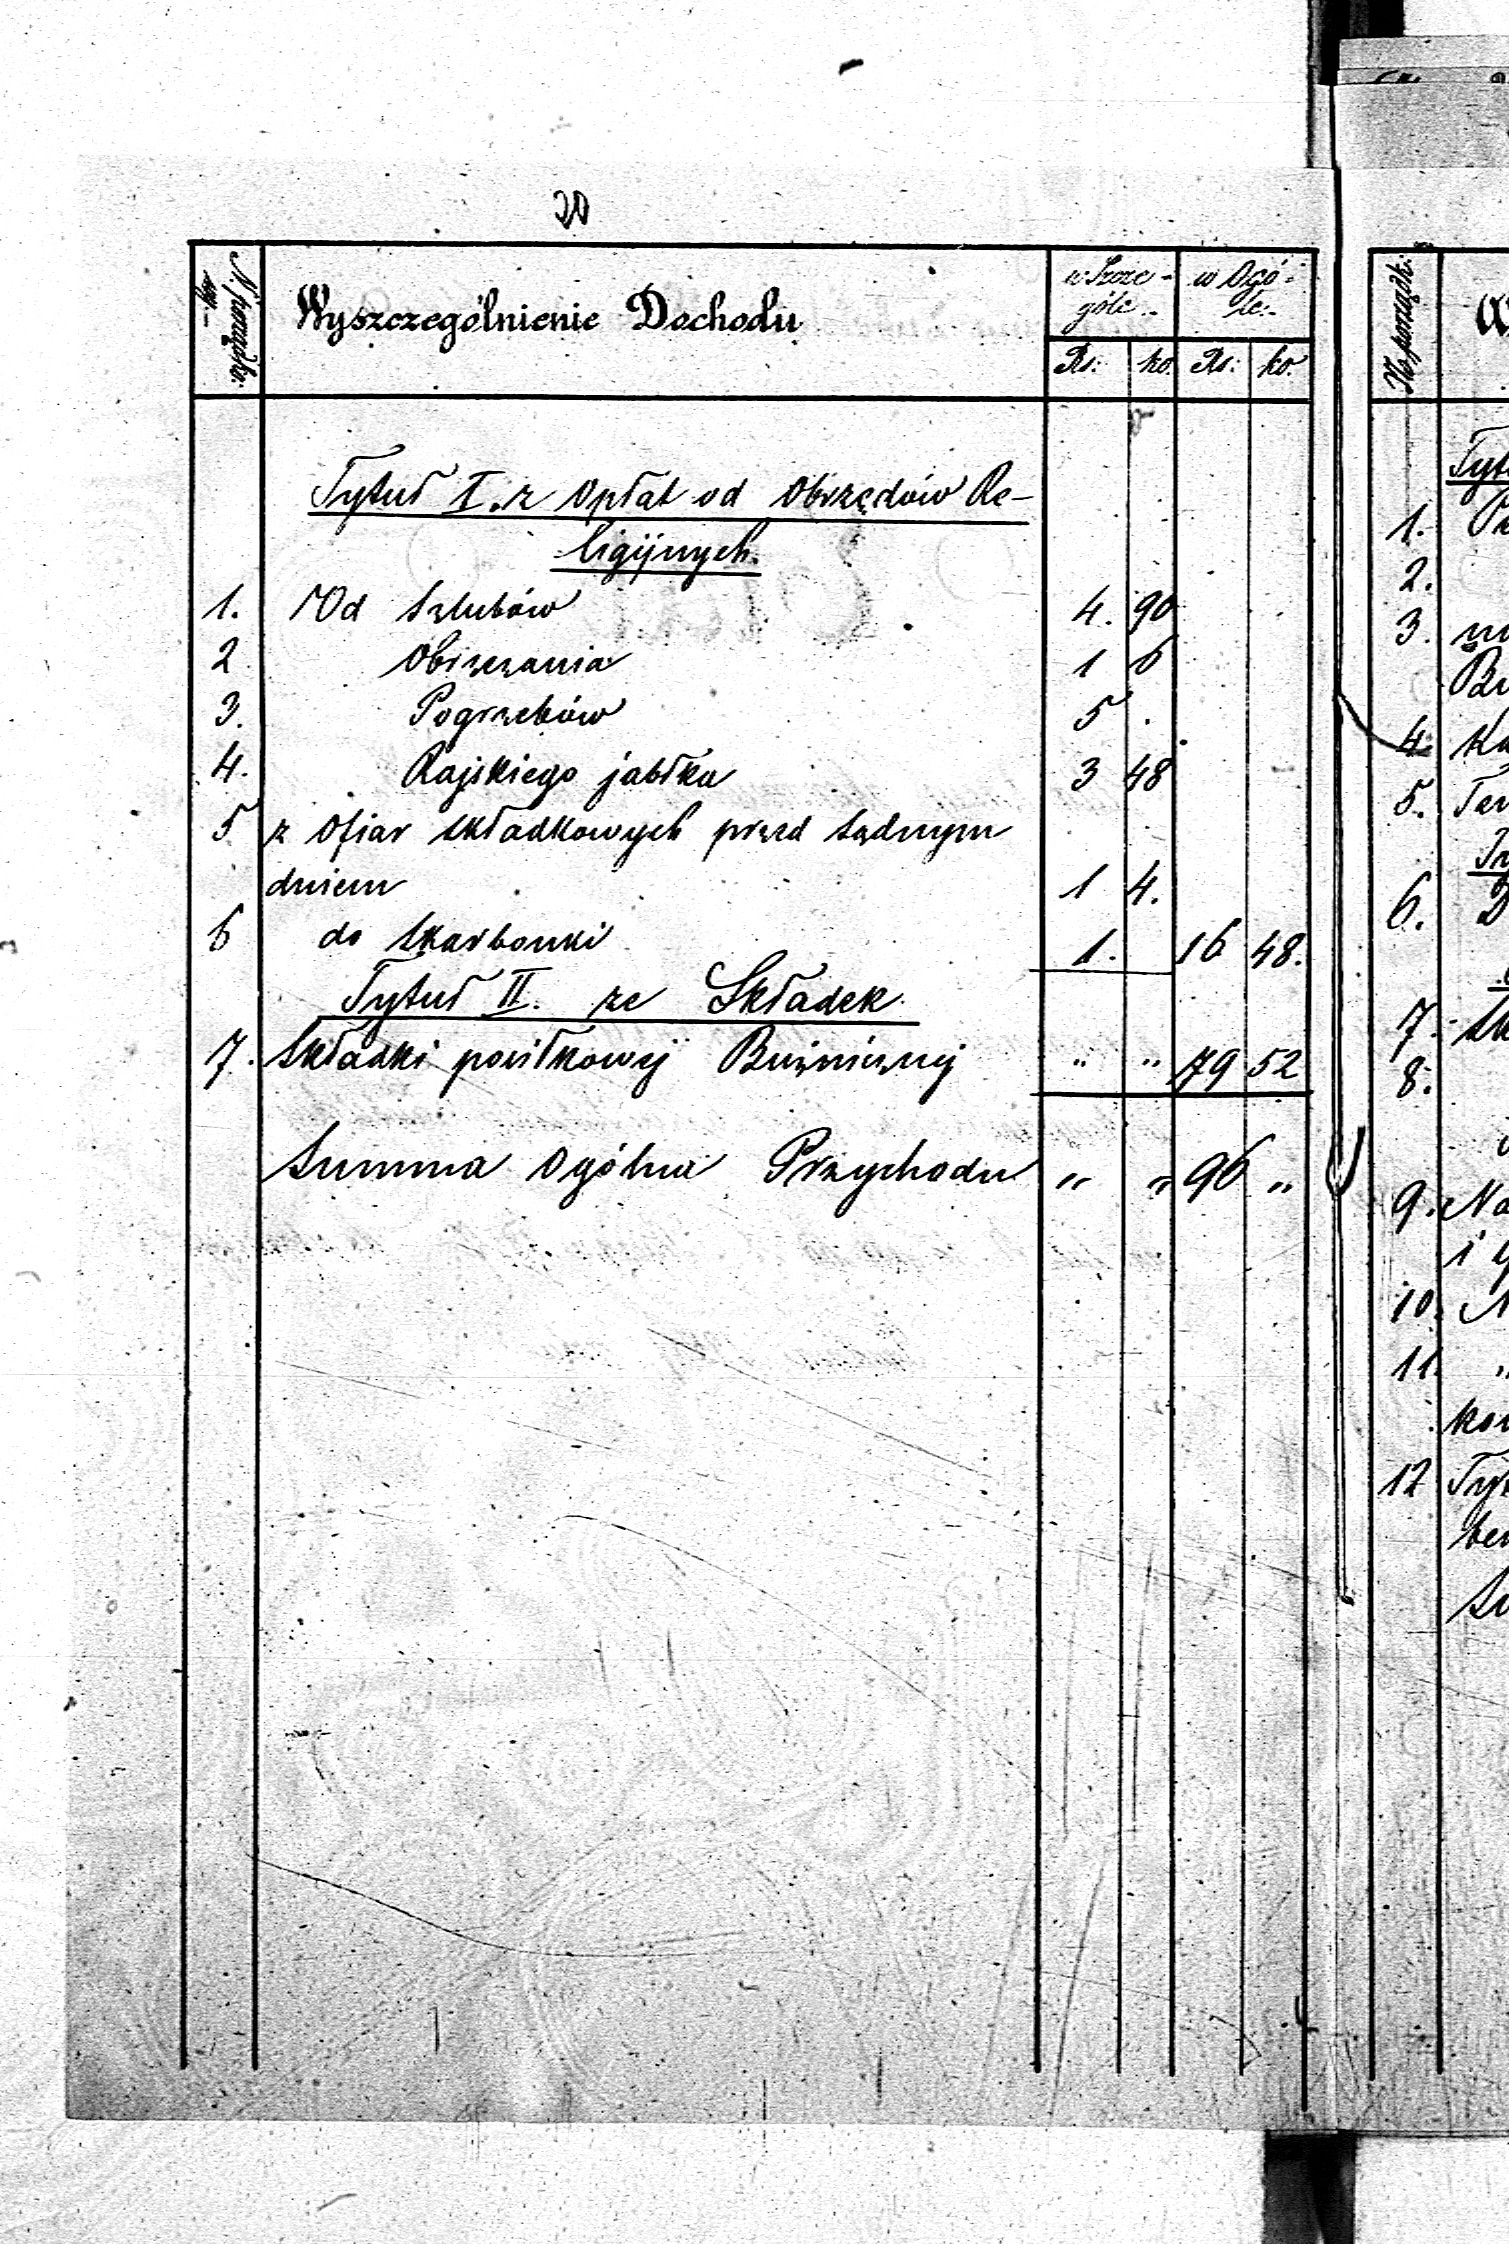 20
N. porządko-
wy.
Wyszczególnienie Dochodu
w Szcze-
góle
w Ogó-
le
Rs: ko. Rs: ko.
Tytuł I. z Opłat od Obrzędów Re-
ligijnych.
1. Od Szlubów 4. 90
2 Obrzezania 1 6
3. Pogrzebów 5 .
4. Rajskiego jabłka 3 48
5 z Ofiar składkowych przed Sądnym
dniem 1 4.
6 do Skarbonki 1. 16 48.
Tytuł II. ze Składek.
7. Składki posiłkowej Bużnicznej " " 79 52
Summa Ogólna Przychodu " " 96 "
No porządk:
W
Tyt
1.
2.
3.
4. Ka
5.
6.
7.
8.
9. Na
i
10.
11. "
12 Tyt